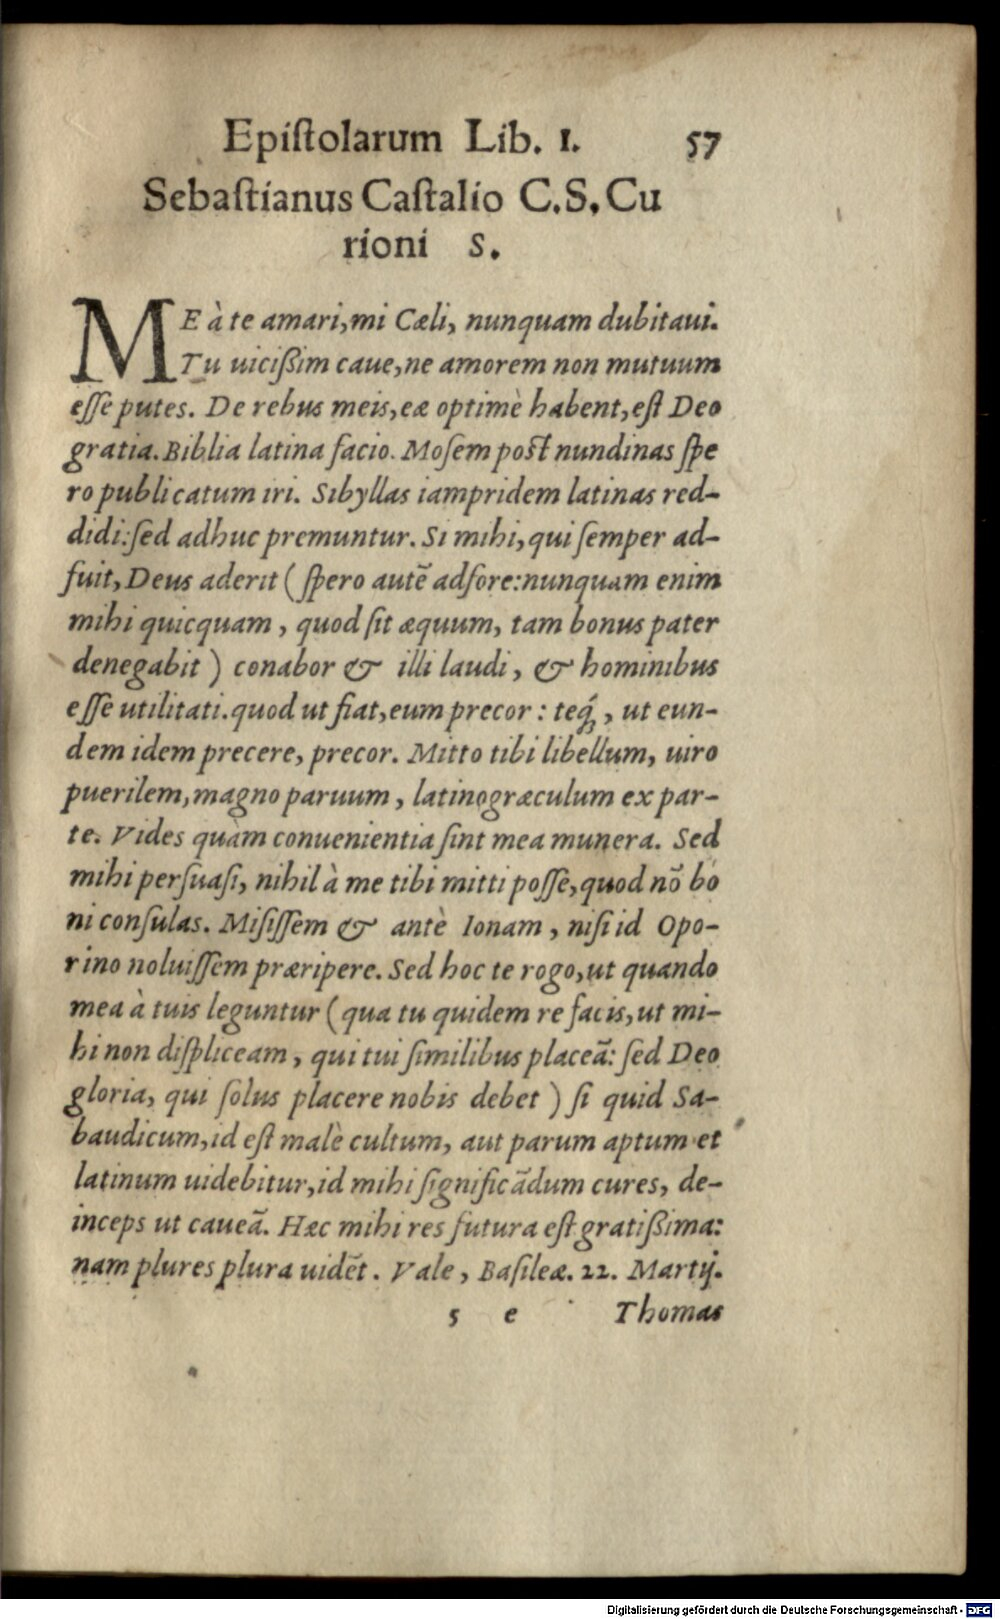 Epiſtolarum Lib. I. 57
Sebaſtianus Caſtalio C.S.Cu
rioni S.
ME à te amari, mi Cæli, nunquam dubitaui.
Tu uicißim caue, ne amorem non mutuum
eſſe putes. De rebus meis, eæ optimè habent, eſt Deo
gratia. Biblia latina facio. Moſem poſt nundinas ſpe
ro publicatum iri. Sibyllas iampridem latinas red-
didi: ſed adhuc premuntur. Si mihi, qui ſemper ad-
fuit, Deus aderit ( ſpero autẽ adfore: nunquam enim
mihi quicquam, quod ſit æquum, tam bonus pater
denegabit ) conabor & illi laudi, & hominibus
eſſe utilitati. quod ut fiat, eum precor : teq́;, ut eun-
dem idem precere, precor. Mitto tibi libellum, uiro
puerilem, magno paruum, latinogræculum ex par-
te. Vides quàm conuenientia ſint mea munera. Sed
mihi perſuaſi, nihil à me tibi mitti poſſe, quod nõ bo
ni conſulas. Miſiſſem & antè Ionam, niſi id Opo-
rino noluiſſem præripere. Sed hoc te rogo, ut quando
mea à tuis leguntur ( qua tu quidem re facis, ut mi-
hi non diſpliceam, qui tui ſimilibus placeã: ſed Deo
gloria, qui ſolus placere nobis debet ) ſi quid Sa-
baudicum, id eſt malè cultum, aut parum aptum et
latinum uidebitur, id mihi ſignificãdum cures, de-
inceps ut caueã. Hæc mihi res futura eſt gratißima:
nam plures plura uidẽt. Vale, Baſileæ. 22. Martij.
5 e Thomas
Digitalisierung gefördert durch die Deutsche Forschungsgemeinschaft - DFG